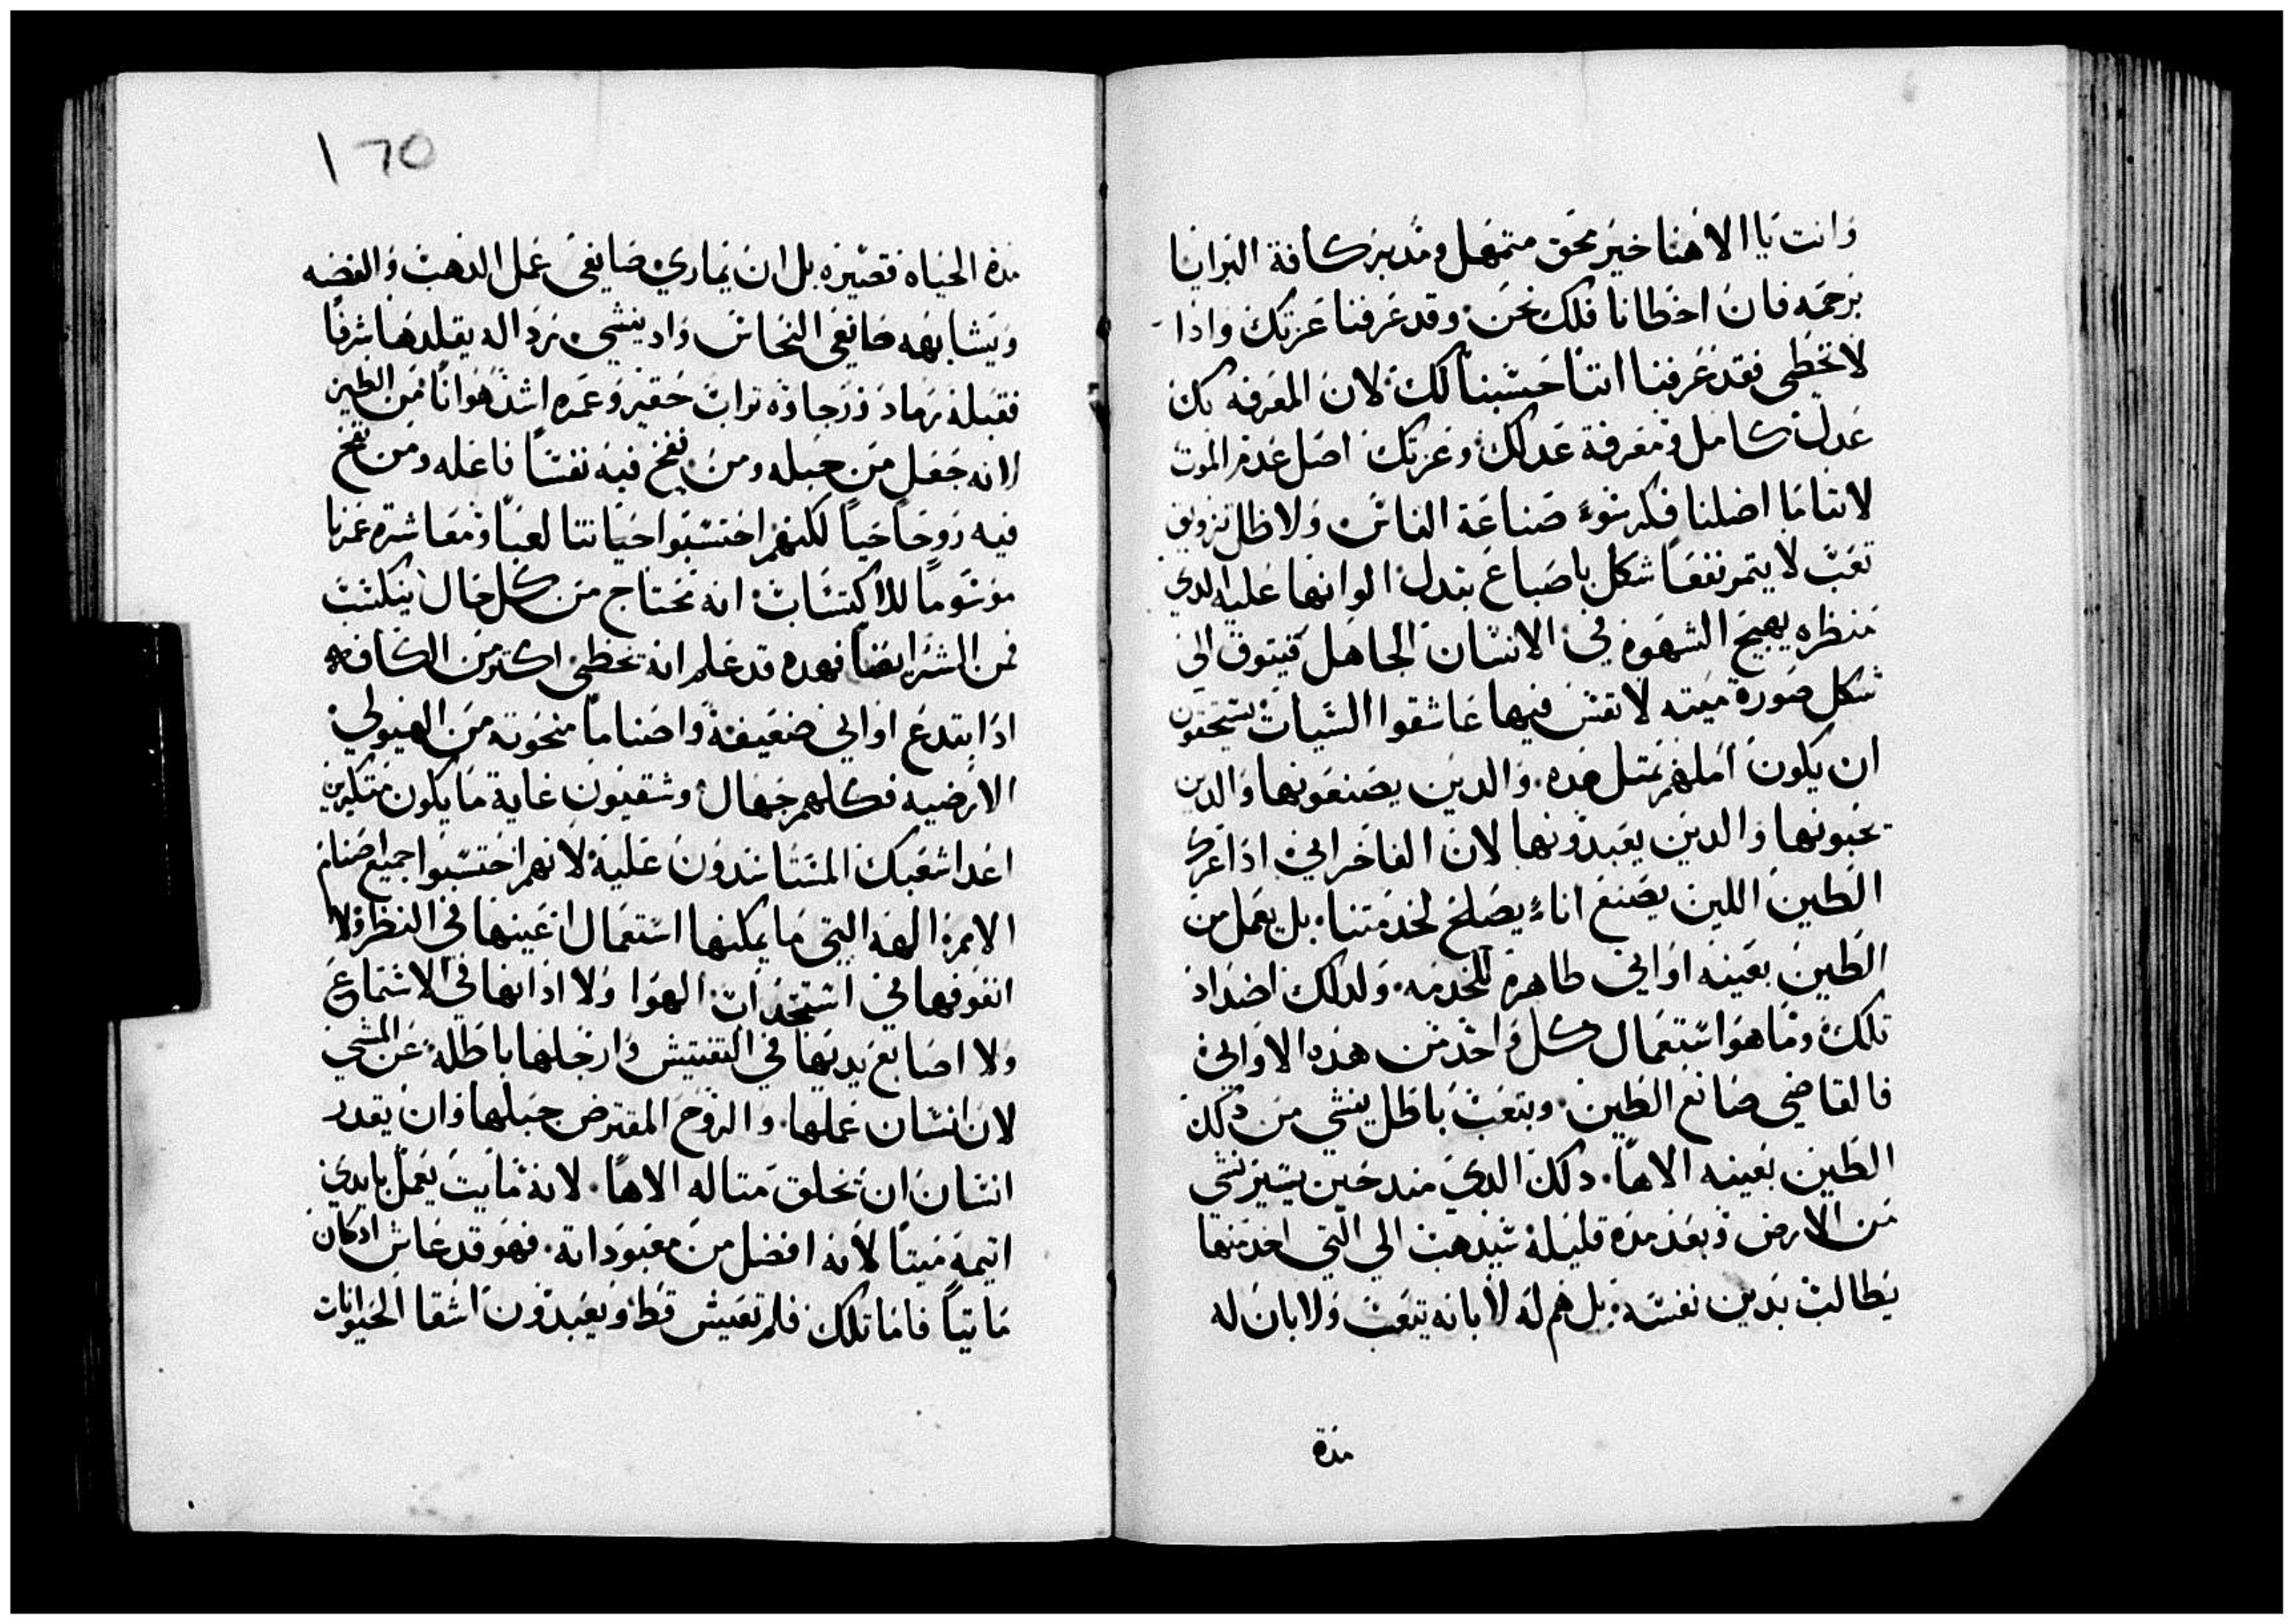 وانت يا الاهنا خير محق متمهل ومدبر كافة البرايا
برحمه فان اخطانا فلك نحن وقد عرفنا عزتك واذا
لا تخطى فقد عرفنا اننا حسبنا لك لان المعرفه بك
عدل كامل ومعرفة عدلك وعزتك اصل عدم الموت
لاننا ما اضلنا فكر سوء صناعة الناس ولا ظل تزويق
تعب لا يتمر نفعا شكل باصباغ بتدل الوانها عليه الدي
منظره يهيج الشهوه في الانسان الجاهل فيتوق الى
شكل صورة ميته لا نفس فيها عاشقوا السيات يستحقون
ان يكون املهم بمتل هده والدين يصنعونها والدين
يحبونها والدين يعبدونها لان الفاخراني اذا عرك
الطين اللين يصنع اناء يصلح لخدمتنا بل يعمل من
الطين بعينه اواني طاهرة للخدمه ولدلك اضداد
تلك وما هو استعمال كل واحد من هذه الاواني
فالقاضي صانع الطين وبتعب باطل ينشي من دلك
الطين بعينه الاها دلك الدي مند حين يسير نشي
من الارض وبعد مدة قليلة سيدهب الي التي اخد منها
يطالب بدين نفسه بل هم له لا بانه يتعب ولا بان له
مدة
١٦٥
مدة الحياه قصيره بل ان يماري صايغى عمل الدهب والفضه
ويشابهه صانعى النحاس واد ينشي برداله يقلدها شرفا
فقبله رماد ورجاوه تراب حقير وعمره اشد هوانا من الطين
لانه جهل من جبله ومن نفخ فيه نفسا فاعله ومن نفخ
فيه روحا حيا لكنهم احتسبوا حياتنا لعبا ومعاشرة عمرنا
موسوما للاكتساب انه نحتاج من كل حال نكتسب
فمن الشر ايضا فهده قد علم انه تخطى اكتر من الكافه
اذا بتدع اواني ضعيفة واصناما منحوته من الهيولي
الارضيه فكلهم جهال وشقيون غاية ما يكون متكبرين
اعدا شعبك المستاسدون عليه لانهم احتسبوا جميع اصنام
الامم الهه التي ما يمكنها استعمال اعينها في النظر ولا
انفوفها في استجداب الهوا ولا ادانها في الاستماع
ولا اصابع يديها في التفتيش وارجلها باطله عن المشي
لان انسان عملها والروح المقترض جبلها وان يقدر
انسان ان يخلق متاله الاها لانه مايت يعمل بايدي
اتيمة ميتا لانه افضل من معبوداته فهو قد عاش ادكان
مايتا فاما تلك فلم تعيش قط ويعبدون اشقا الحيوانات